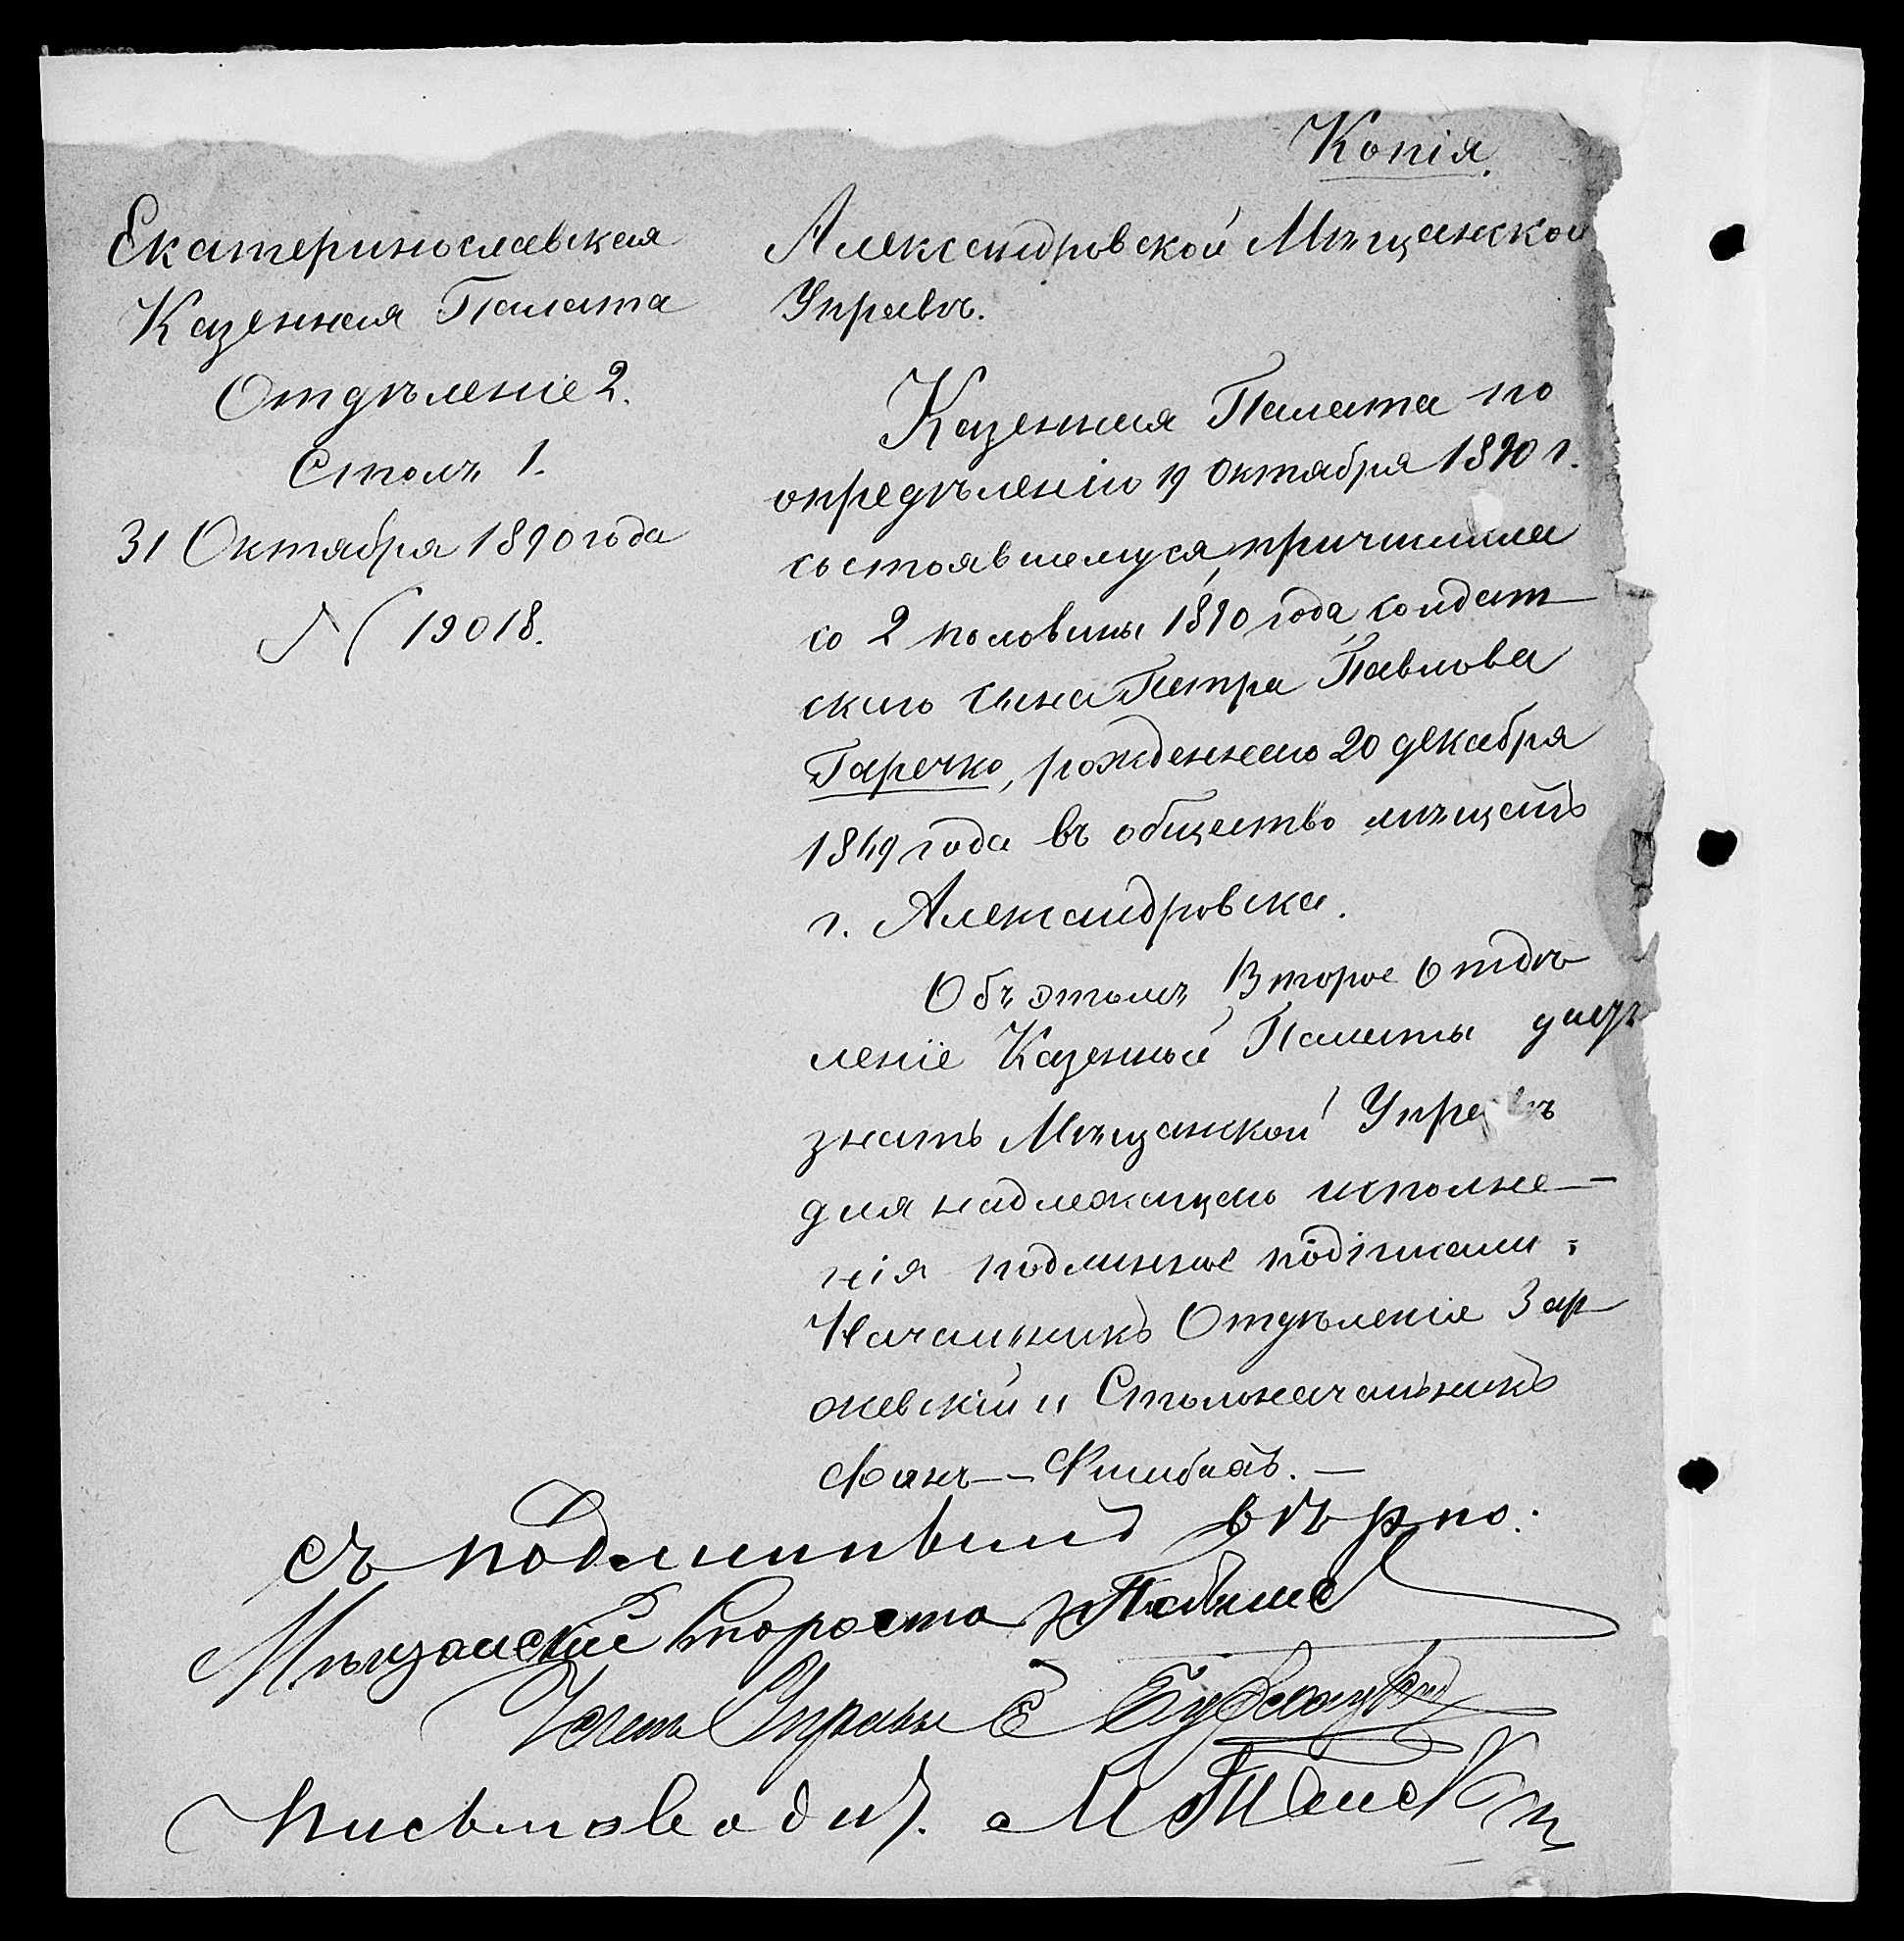 Копія.
Екатеринославская
Казенная Палата
Отдѣленіе 2.
Столъ 1.
31 Октября 1890 года
№ 19018.
Александровской Мѣщанской
Управѣ.
Казенная Палата по
опредѣленію 19 Октября 1890 г.
состоявшемуся, причислила
со 2 половины 1890 года солдат
скаго сына Петра Павлова
Гаречко, рожденнаго 20 декабря
1849 года въ общество мѣщанъ
г. Александровска.
Объ этомъ Второе Отдѣ
леніе Казенной Палаты даетъ
знать Мѣщанской Управѣ
для надлежащаго исполне-
нія подлинное подписали:
Начальникъ Отдѣленія Зар
жевскій и Столоначальникъ
съ подлиннымъ вѣрно:
Мѣщанскій Староста
Членъ Управы Е
Письмовод.